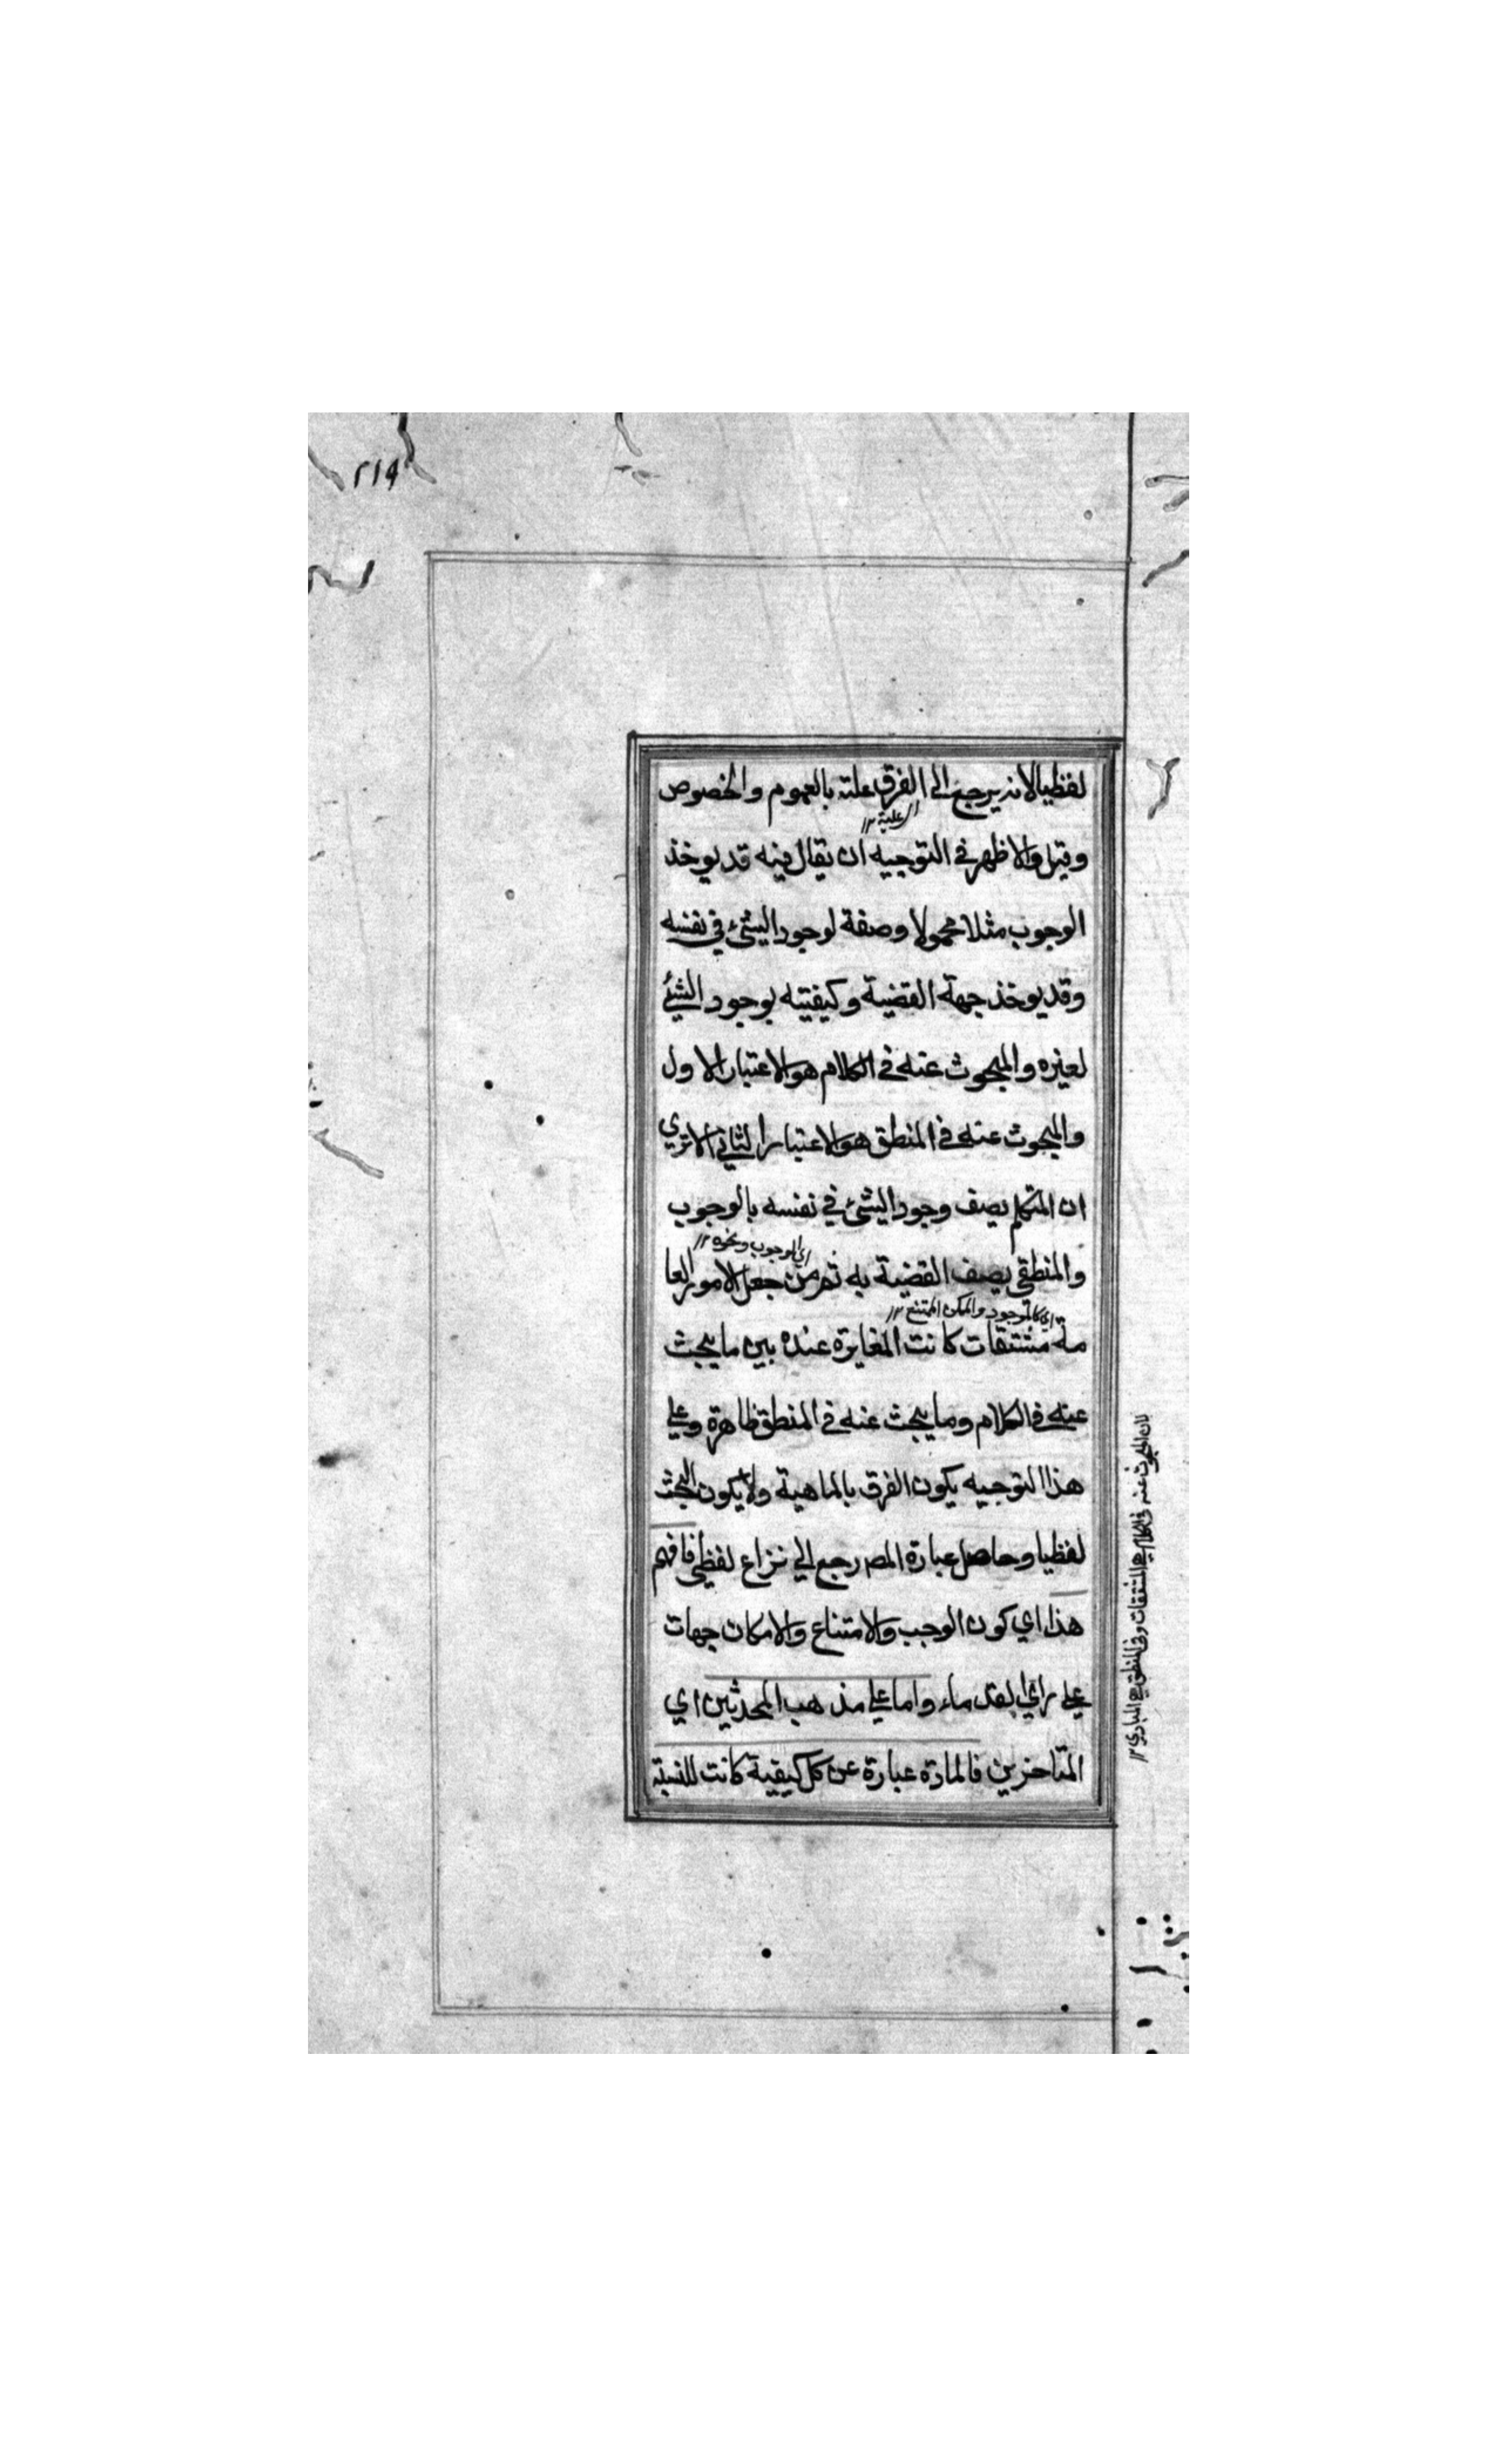 ٢١٩
لفظيا لانه يرجع الى الفرق علته بالعموم والخصوص
وقيل والاظهر في التوجيه ان يقال فيه قد يوخذ
الوجوب مثلا محمولا وصفة لوجود الشئ في نفسه
وقد يوخذ جهة القضية وكيفيته بوجود الشئ
لغيره والمبحوث عنه في الكلام هو الاعتبار الاول
والمبحوث عنه في المنطق هو الاعتبار الثاني الا تري
ان المتكلم يصف وجود الشئ في نفسه بالوجوب
اي الوجوب ونحوه ١٢
والمنطقي يصف القضية به ثم من جعل الامور العا
اي كالموجود والممكن الممتنع ١٢
مة مشتقات كانت المغايرة عنده بين ما يبحث
عنه في الكلام وما يبحث عنه في المنطق ظاهرة وعلي
هذا التوجيه يكون الفرق بالماهية ولا يكون البحث
لفظيا وحاصل عبارة المصـ رجع الي نزاع لفظي فافهم
هذا اي كون الوجب والامتناع والامكان جهات
علي راي القدماء واما علي مذهب المحدثين اي
المتاخرين فالمادة عبارة عن كل كيفية كانت للنسبة
لان المبحوث عنه في الكلام هي المشتقات وفي المنطق هي المبادي ١٢